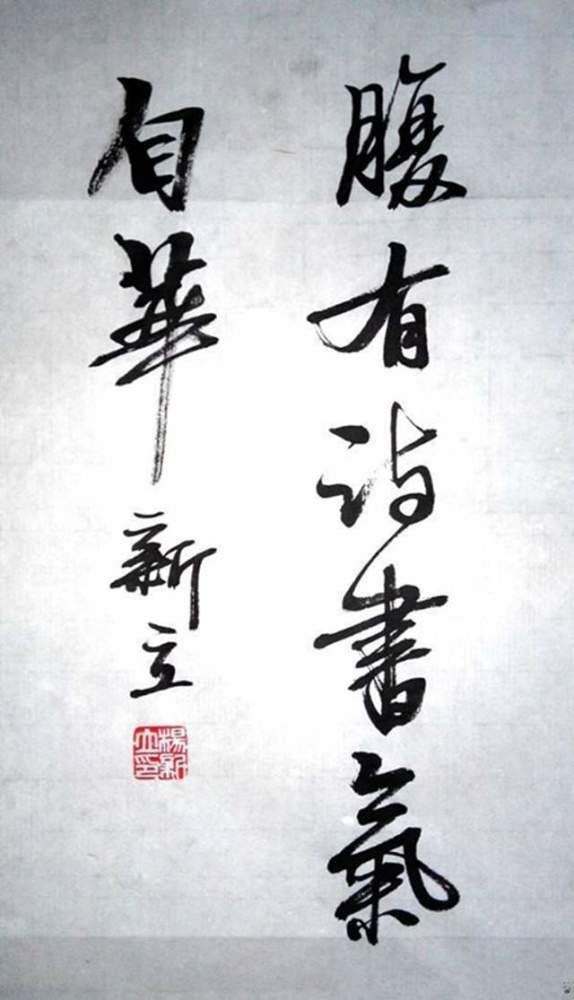 腹有诗書氣
自華
新立
楊新立印